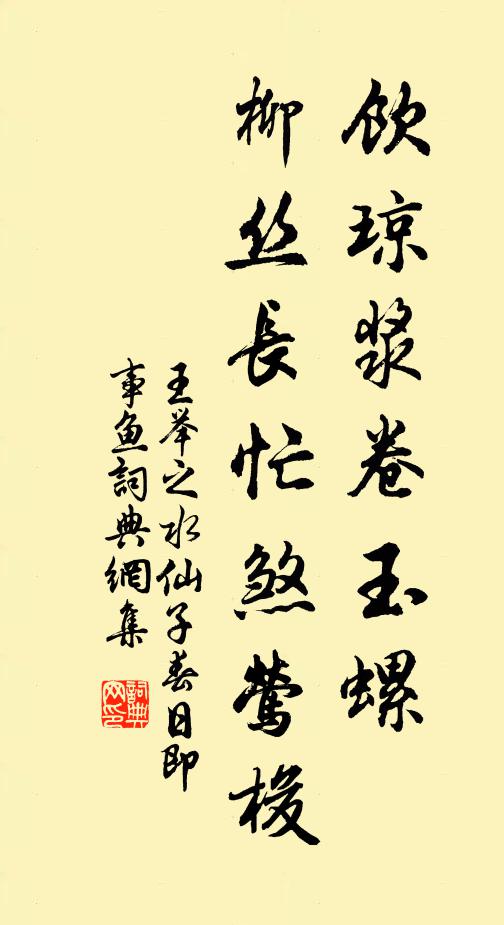 飲琼漿卷玉螺
柳丝長忙煞莺梭
王举之水仙子春日即
事鱼詞典網集
詞典
网印